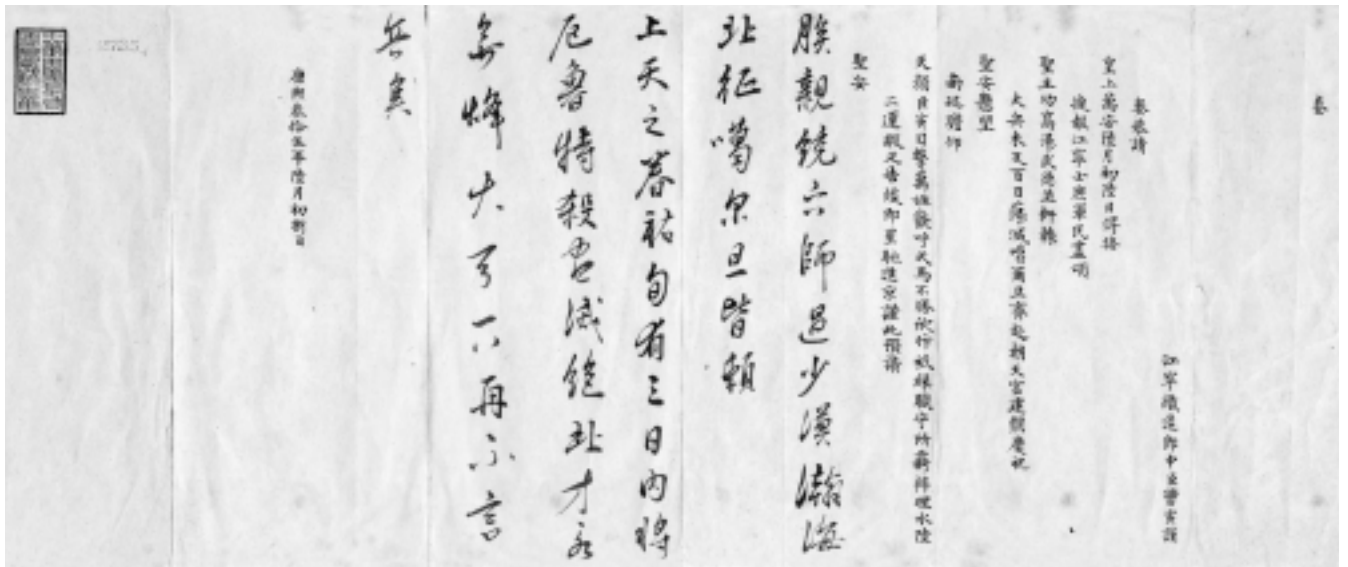 奏
江寧織造郎中臣曹寅謹
奏恭請
皇上萬安陸月初陸日得接
捷報江寧士庶軍民盡頌
聖主功高湯武德並軒轅
大兵未足百日蕩滅噶爾旦齊赴朝天宮建醮慶祝
聖安懸望
南巡瞻仰
天顏目擊萬姓歡呼犬馬不勝欣忭祇緣職守所羈理水陸
二運緞疋告竣即星馳進京謹此預請
聖安
朕親統六師過少漠瀚海
北征噶尔旦皆賴
上天之眷祐旬有三日內將
厄魯特殺盡滅絕北方永
無烽火了 再不言
兵矣
康熙叁拾伍年陸月初 日